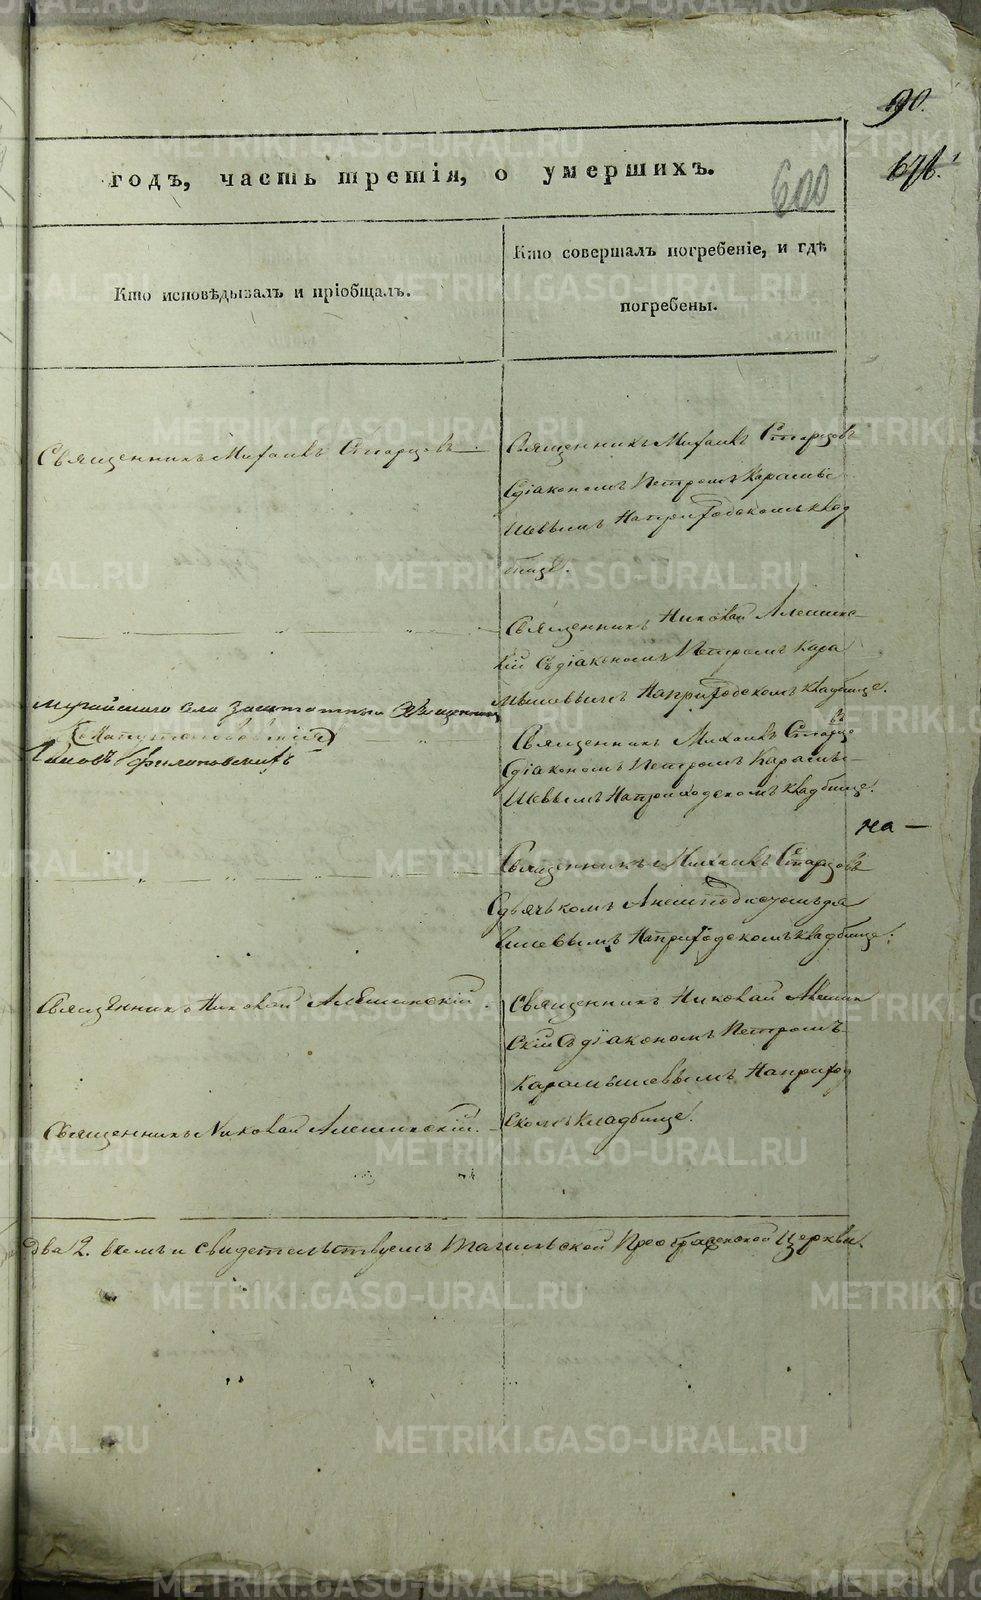 90.
600
годъ, часть третія, о умершихъ.
Кто исповѣдывалъ и пріобщалъ.
Кто совершалъ погребеніе, и гдѣ
погребены.
Священникъ Михаилъ Старцовъ
Священникъ Михаилъ Старцовъ
Сдіакономъ Петромъ Карамы
шевымъ Наприходскомъ клад
бище.
Священникъ Николай Алешинс
кій Съдіакономъ Петромъ Кара
мышевымъ Наприходскомъ кладбище.
села Заштатный Священникъ
Священникъ Михаилъ Старцовъ
Сдіакономъ Петромъ Карамы-
шевымъ Наприходскомъ кладбище.
на —
Священникъ Михаилъ Старцовъ
Сдьячькомъ
Наприходскомъ кладбище.
Священникъ Николай Алешинскій.
Священникъ Николай Алешин
скій Съ діакономъ Петромъ
Карамышевымъ Наприход
скомъ кладбище.
Священникъ Николай Алешинскій.
два 2. вчемъ и свидетельствуемъ Тагильской Преображенской Церкви.
METRIKI.GASO-URAL.RU